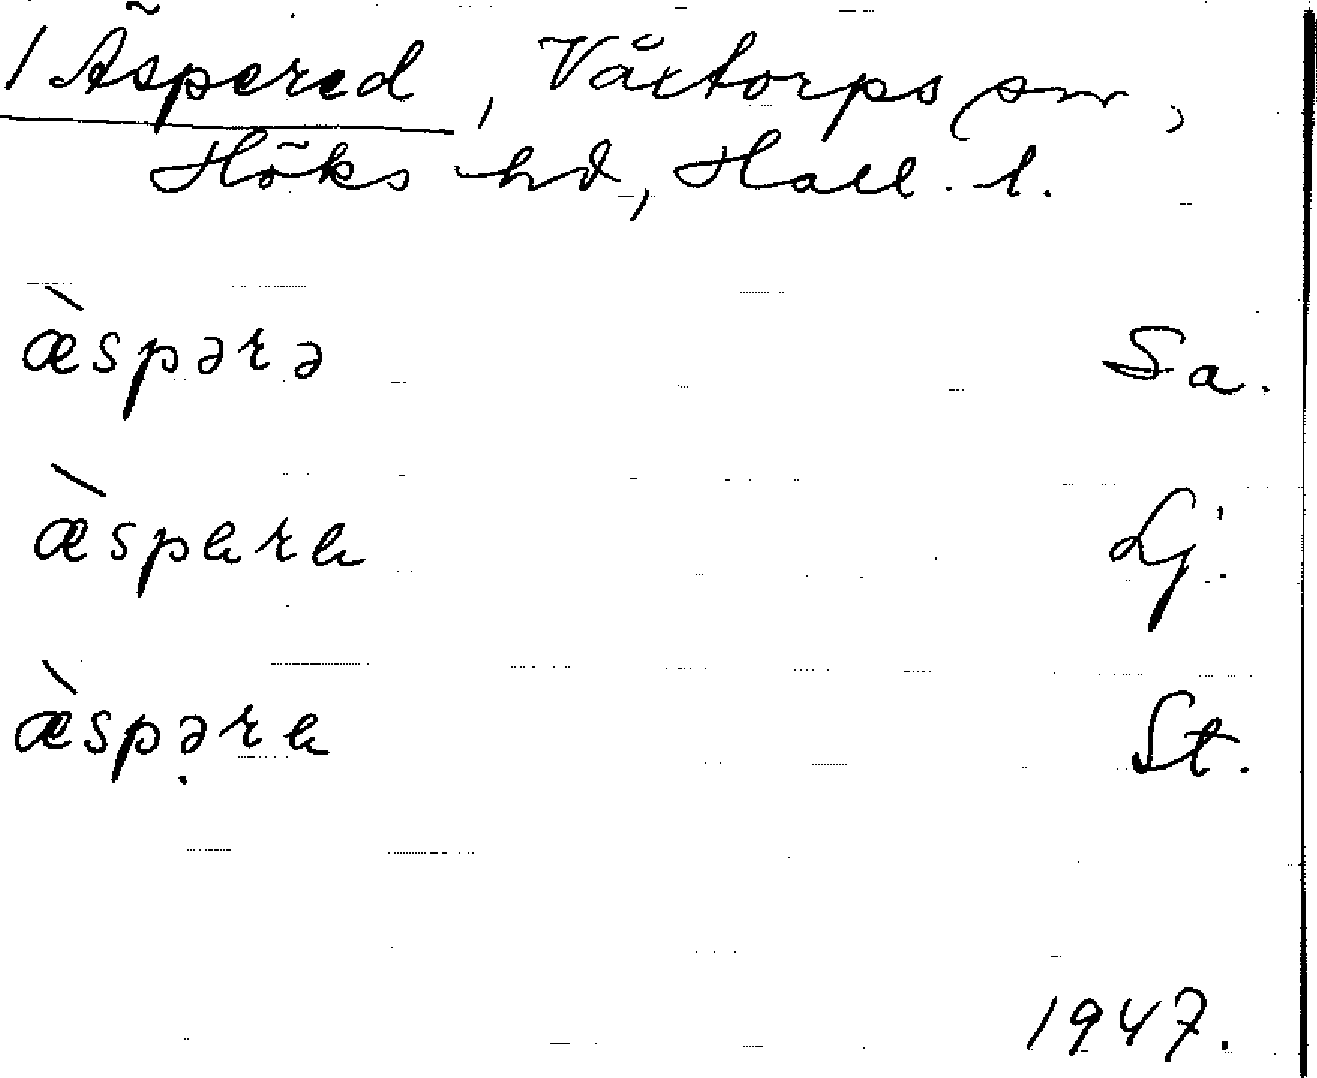 1 Äspered, Våxtorps sn,
Höks hd, Hall. l.
æ̀spərə Sa.
æ̀spɐrɐ Lj.
æ̀spə̣rɐ St.
1947.